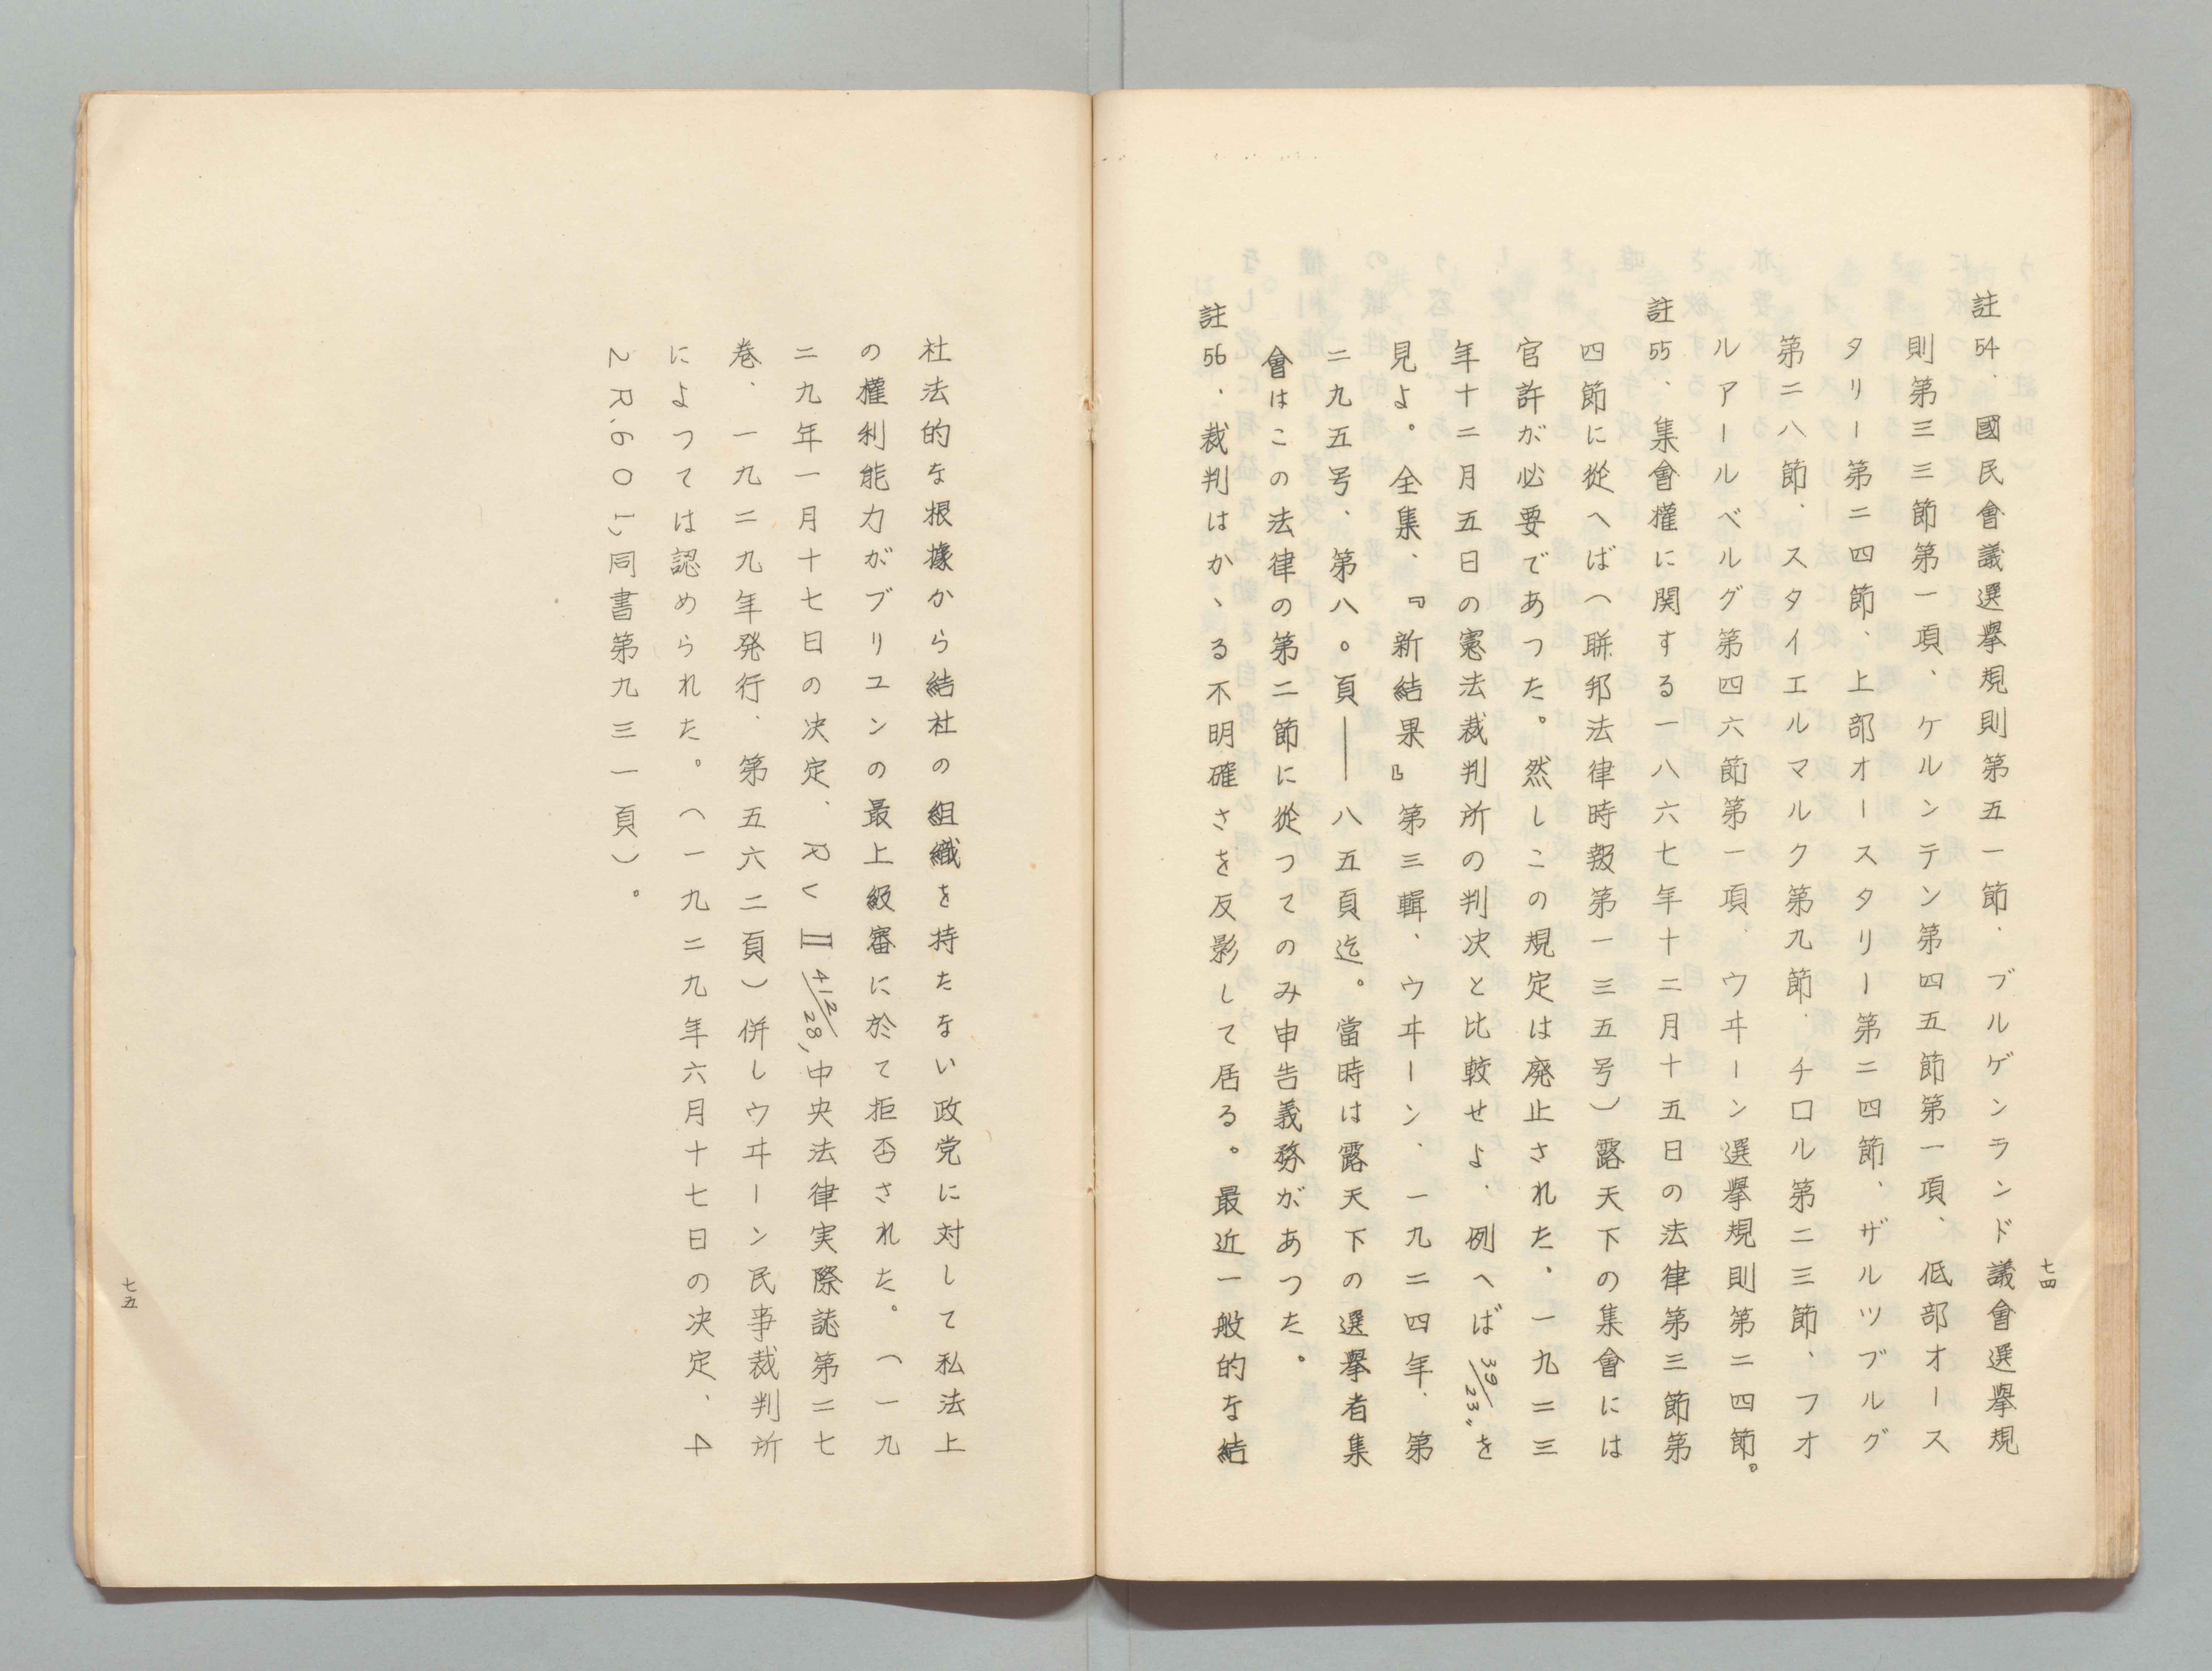 七四
註54、國民會議選擧規則第五一節、ブルゲンランド議會選擧規
則第三三節第一項、ケルンテン第四五節第一項、低部オース
タリー第二四節、上部オースタリー第二四節、ザルツブルグ
第二八節、スタイエルマルク第九節、チロル第二三節、フオ
ルアールベルグ第四六節第一項、ウヰーン選擧規則第二四節。
註55、集會權に関する一八六七年十二月十五日の法律第三節第
四節に從へば(聯邦法律時報第一三五号)露天下の集會には
官許が必要であつた。然しこの規定は廃止された、一九二三
年十二月五日の憲法裁判所の判决と比較せよ、例へば39/23,,を
見よ。全集、『新結果』第三輯、ウヰーン、一九二四年、第
二九五号、第八〇頁――八五頁迄。當時は露天下の選擧者集
會はこの法律の第二節に從つてのみ申告義務があつた。
註56、裁判はかゝる不明確さを反影して居る。最近一般的な結
社法的な根據から結社の組織を持たない政党に対して私法上
の權利能力がブリユンの最上級審に於て拒否された。(一九
二九年一月十七日の决定、RV II 412/28,,中央法律実際誌第二七
巻、一九二九年発行、第五六二頁)併しウヰーン民事裁判所
によつては認められた。(一九二九年六月十七日の决定、4
2R.601,同書第九三一頁)。
七五